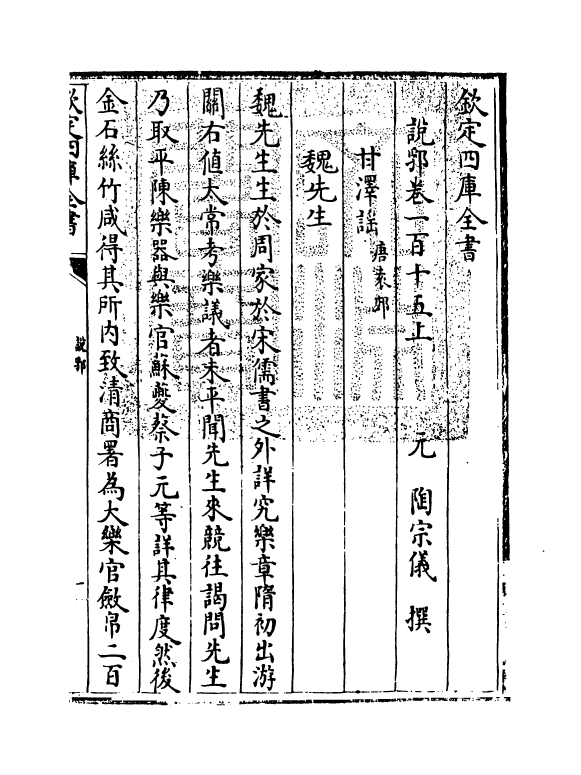 欽定四庫全書
說郛卷一百十五上　元　陶宗儀　撰
甘澤謡 唐袁郊
魏先生
魏先生生於周家於宋儒書之外詳究樂章隋初出游
關右値太常考樂議者未平聞先生來競往謁問先生
乃取平陳樂器與樂官蘇夔蔡子元等詳其律度然後
金石絲竹咸得其所内致清商署為大樂官斂帛二百
欽定四庫全書
說郛
一